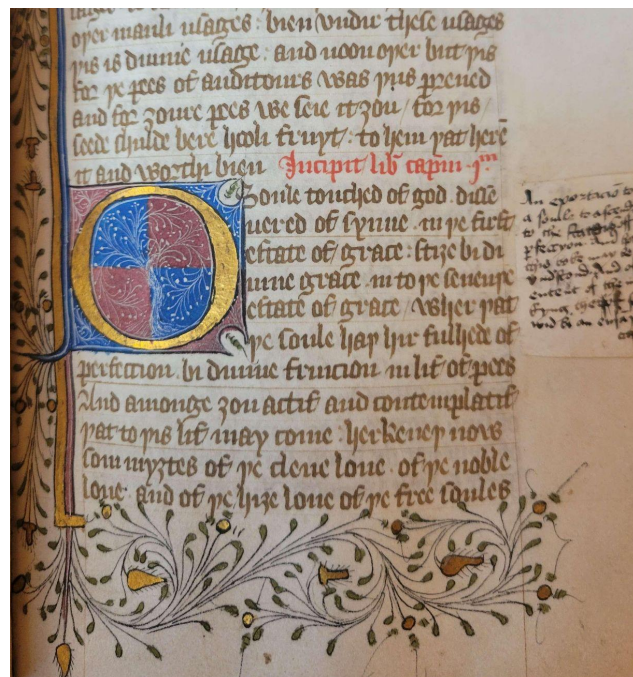 oþer manli usages: bien vndir these usages
þis is diuine usage: and noon oþer but þis
for þe pees of auditours was þis preued
and for ȝoure pees we seie it ȝou / for þis /
seede schulde bere hooli fruyt: to hem þat herē
it and worthi bien Incipit lib capm ⸱ jm
O Soule touched of god disse
uered of synne ⸱ in þe first
estate of grace: stiȝe bi di
uine grace ⸱ in to þe seuenþe
estate of grace / wher þat
þe soule haþ hir fulhede of
perfection ⸱ bi diuine fruicion in lif of pees
And amonge ȝou actif and contemplatif
þat to þis lif may come: herkeneþ now
som myȝtes of þe clene loue ⸱ of þe noble
loue ⸱ and of þe hiȝe loue of þe free soules
An
a soule to
to the